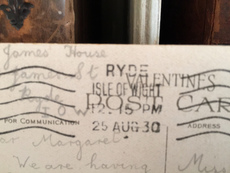 James House
James St
Ryde
I O W
RYDE
ISLE OF WIGHT
12:15 PM
25 AUG 30
VALENTINES
POST CAR
FOR COMMUNICATION
ADDRESS
ar Margaret
We are having
Miss